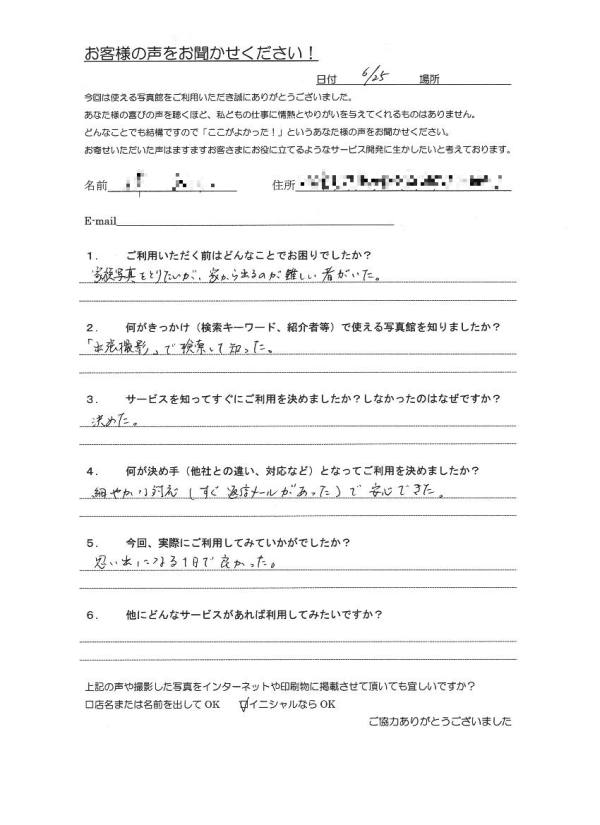 お客様の声をお聞かせください!
日付 6/25 場所
今回は使える写真館をご利用いただき誠にありがとうございました。
あなた様の喜びの声を聴くほど、私どもの仕事に情熱とやりがいを与えてくれるものはありません。
どんなことでも結構ですので「ここがよかった!」というあなた様の声をお聞かせください。
お寄せいただいた声はますますお客さまにお役に立てるようなサービス開発に生かしたいと考えております。
名前 住所
E-mail
1. ご利用いただく前はどんなことでお困りでしたか?
家族写真をとりたいが、家から出るのが難しい者がいた。
2. 何がきっかけ(検索キーワード、紹介者等)で使える写真館を知りましたか?
「出張撮影」で検索して知った。
3. サービスを知ってすぐにご利用を決めましたか?しなかったのはなぜですか?
決めた。
4. 何が決め手(他社との違い、対応など)となってご利用を決めましたか?
細やかい対応(すぐ返信メールがあった)で安心できた。
5. 今回、実際にご利用してみていかがでしたか?
思い出になる1日で良かった。
6. 他にどんなサービスがあれば利用してみたいですか?
上記の声や撮影した写真をインターネットや印刷物に掲載させて頂いても宜しいですか?
□店名または名前を出して OK ☑イニシャルなら OK
ご協力ありがとうございました